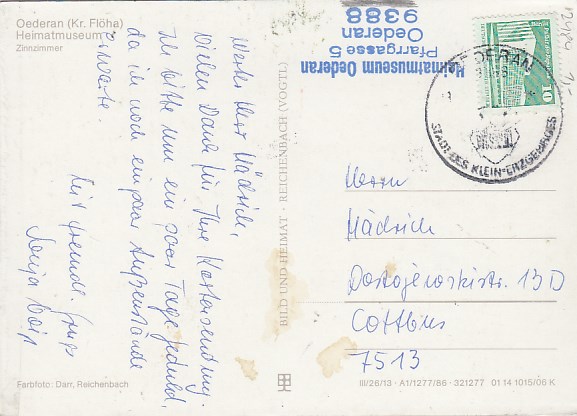 Oederan (Kr. Flöha)
Heimatmuseum
Zinnzimmer
Werter Herr Mädrich,
Vielen Dank für Ihre Kartensendung.
Ich bitte um ein paar Tage Geduld,
da ich noch ein paar Außenstände
erwarte.
Mit freundl. Gruß
Heimatmuseum Oederan
Pfarrgasse 5
Oederan
9388
OEDERAN
STADT DES KLEIN-ERZGEBIRGES
10
Herrn
Mädrich
Dostojewskistr. 13D
Cottbus
7513
BILD UND HEIMAT · REICHENBACH (VOGTL)
Farbfoto: Darr, Reichenbach
III/26/13 · A1/1277/86 · 321277 01 14 1015/06 K